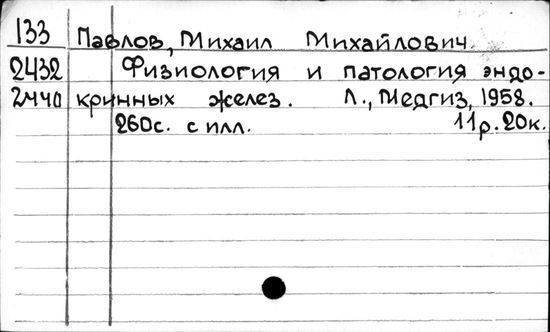 133 Павлов, Михаил Михайлович.
2432 Физиология и патология эндо-
2440 кринных желез. Л., Медгиз, 1958.
260с. с илл. 11р. 20к.